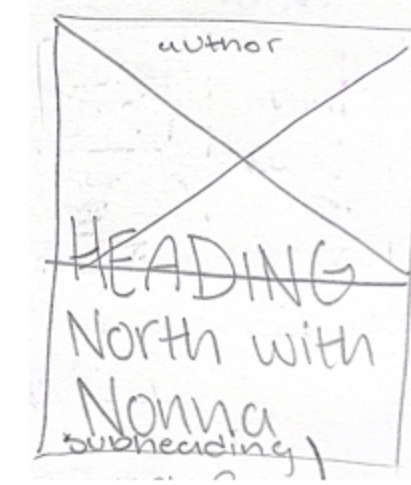 author
HEADING
North with
Nonna
subheading